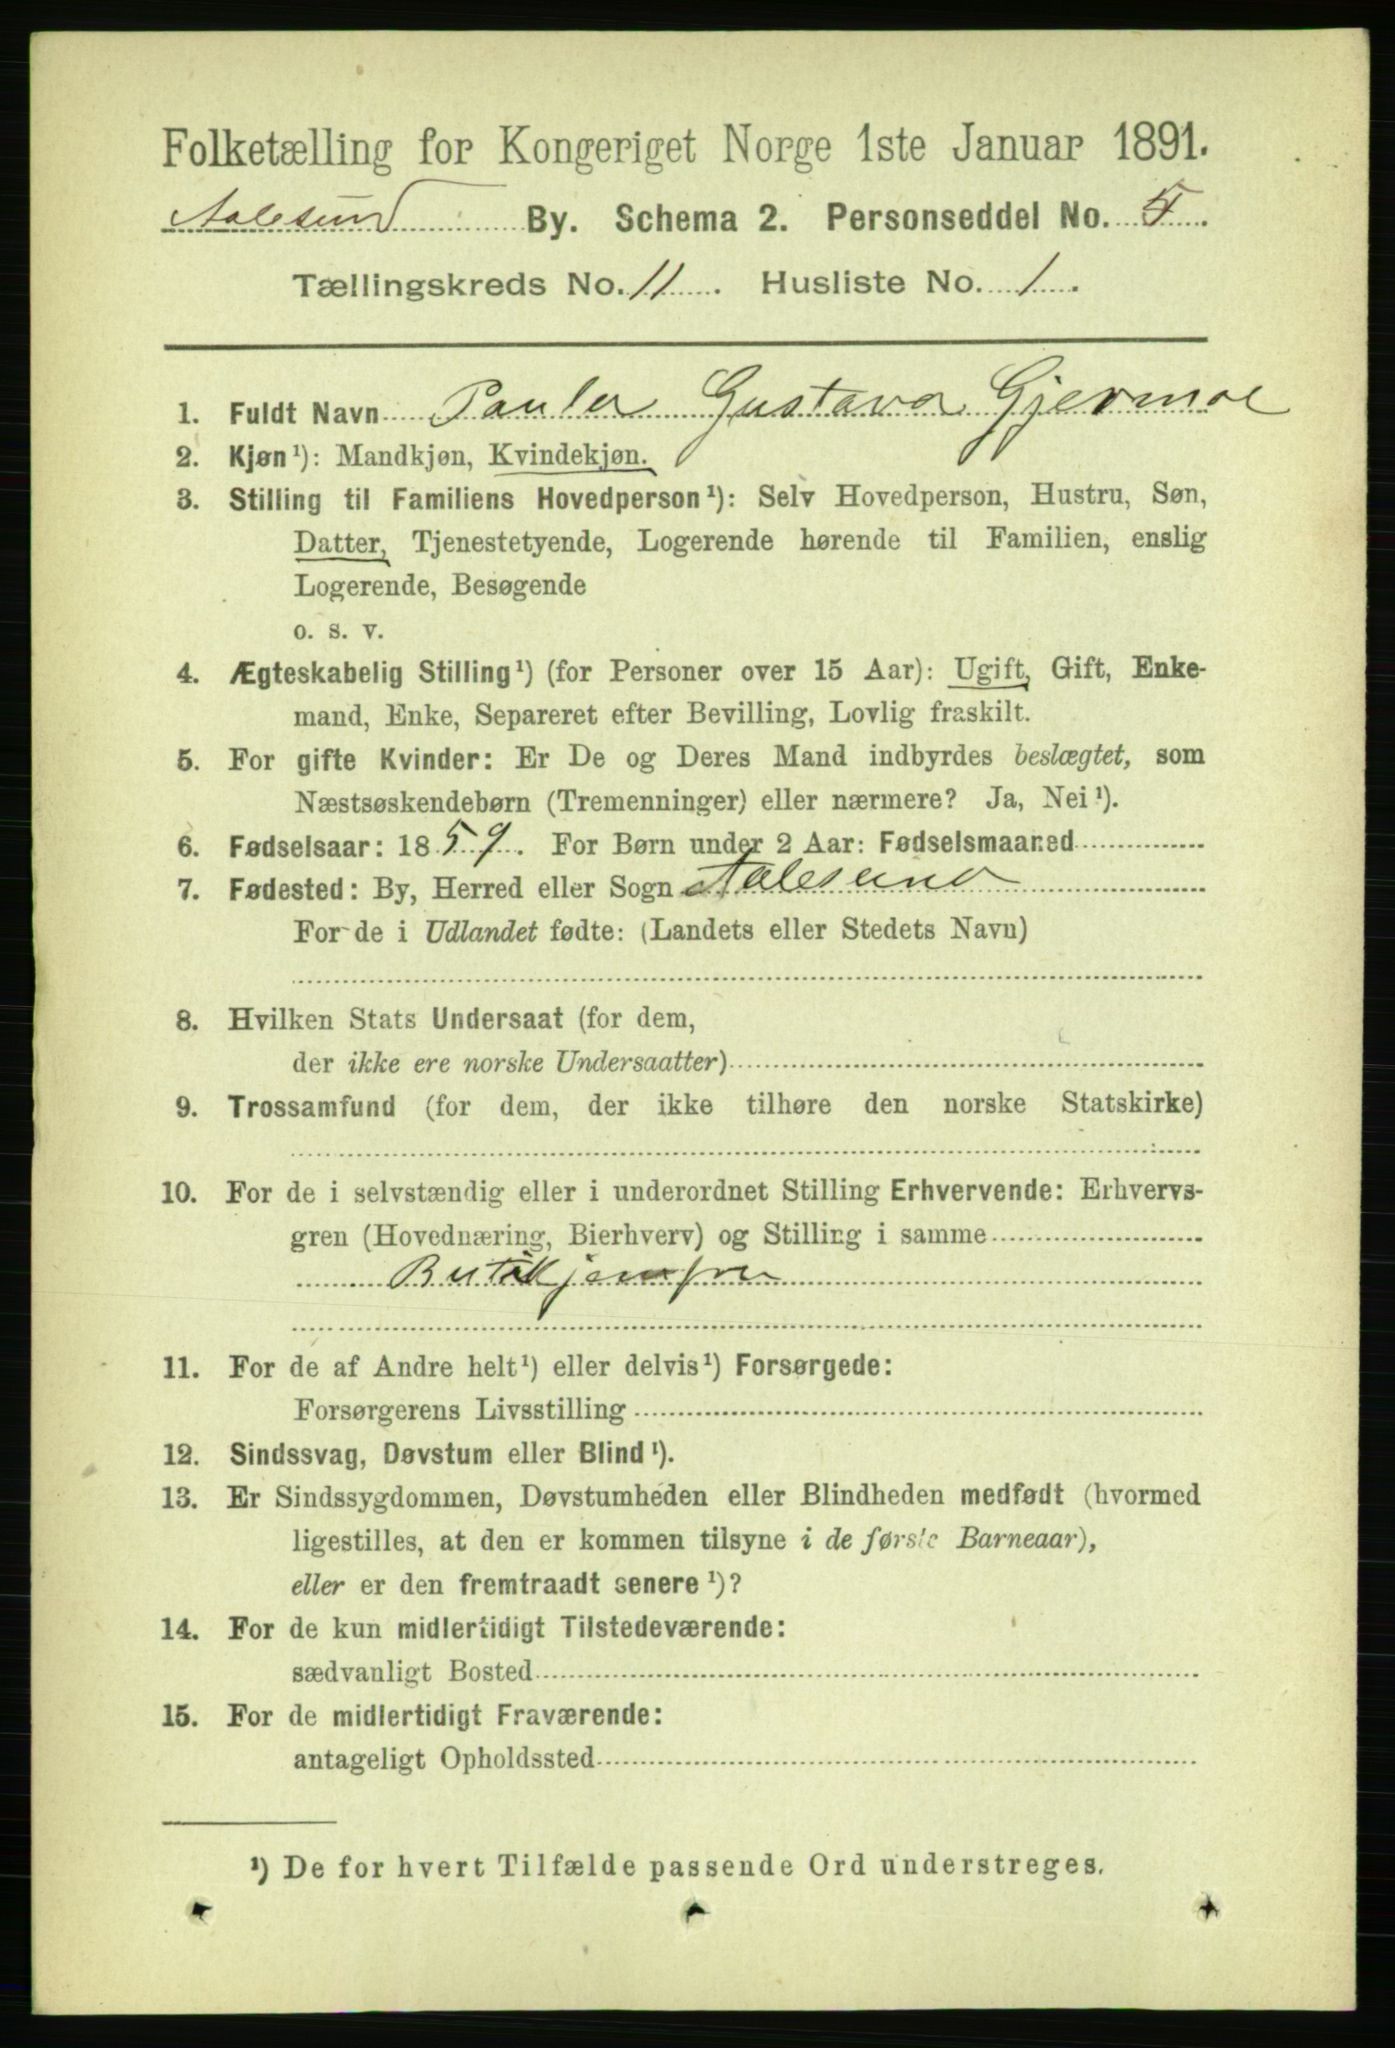 Folketælling for Kongeriget Norge 1ste Januar 1891.
Aalesund By. Schema 2. Personseddel No. 5
Tællingskreds No. 11. Husliste No. 1.
1. Fuldt Navn Paula Gustava Gjermoe
2. Kjøn¹): Mandkjøn, Kvindekjøn.
3. Stilling til Familiens Hovedperson¹): Selv Hovedperson, Hustru, Søn,
Datter, Tjenestetyende, Logerende hørende til Familien, enslig
Logerende, Besøgende
o. s. v.
4. Ægteskabelig Stilling¹) (for Personer over 15 Aar): Ugift, Gift, Enke-
mand, Enke, Separeret efter Bevilling, Lovlig fraskilt.
5. For gifte Kvinder: Er De og Deres Mand indbyrdes beslægtet, som
Næstsøskendebørn (Tremenninger) eller nærmere? Ja, Nei¹).
6. Fødselsaar: 1859. For Børn under 2 Aar: Fødselsmaaned
7. Fødested: By, Herred eller Sogn Aalesund
For de i Udlandet fødte: (Landets eller Stedets Navn)
8. Hvilken Stats Undersaat (for dem,
der ikke ere norske Undersaatter)
9. Trossamfund (for dem, der ikke tilhøre den norske Statskirke)
10. For de i selvstændig eller i underordnet Stilling Erhvervende: Erhvervs-
gren (Hovednæring, Bierhverv) og Stilling i samme
Butikjomfru
11. For de af Andre helt¹) eller delvis¹) Forsørgede:
Forsørgerens Livsstilling
12. Sindssvag, Døvstum eller Blind¹).
13. Er Sindssygdommen, Døvstumheden eller Blindheden medfødt (hvormed
ligestilles, at den er kommen tilsyne i de første Barneaar),
eller er den fremtraadt senere¹)?
14. For de kun midlertidigt Tilstedeværende:
sædvanligt Bosted
15. For de midlertidigt Fraværende:
antageligt Opholdssted
¹) De for hvert Tilfælde passende Ord understreges.